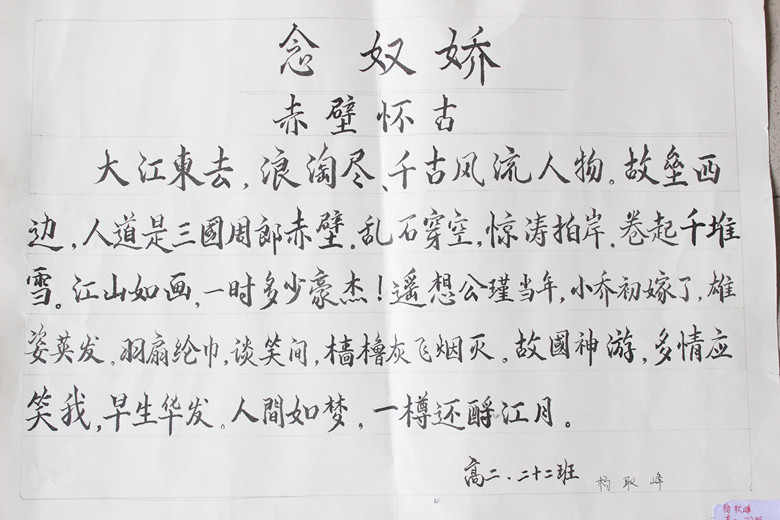 念奴娇
赤壁怀古
大江東去，浪淘尽、千古风流人物。故壘西
边，人道是三國周郎赤壁。乱石穿空，惊涛拍岸。卷起千堆
雪。江山如画，一时多少豪杰！遥想公瑾当年，小乔初嫁了，雄
姿英发。羽扇纶巾，谈笑间，樯橹灰飞烟灭。故國神游，多情应
笑我，早生华发。人間如梦，一樽还酹江月。
高二．二十二班 杨取峰